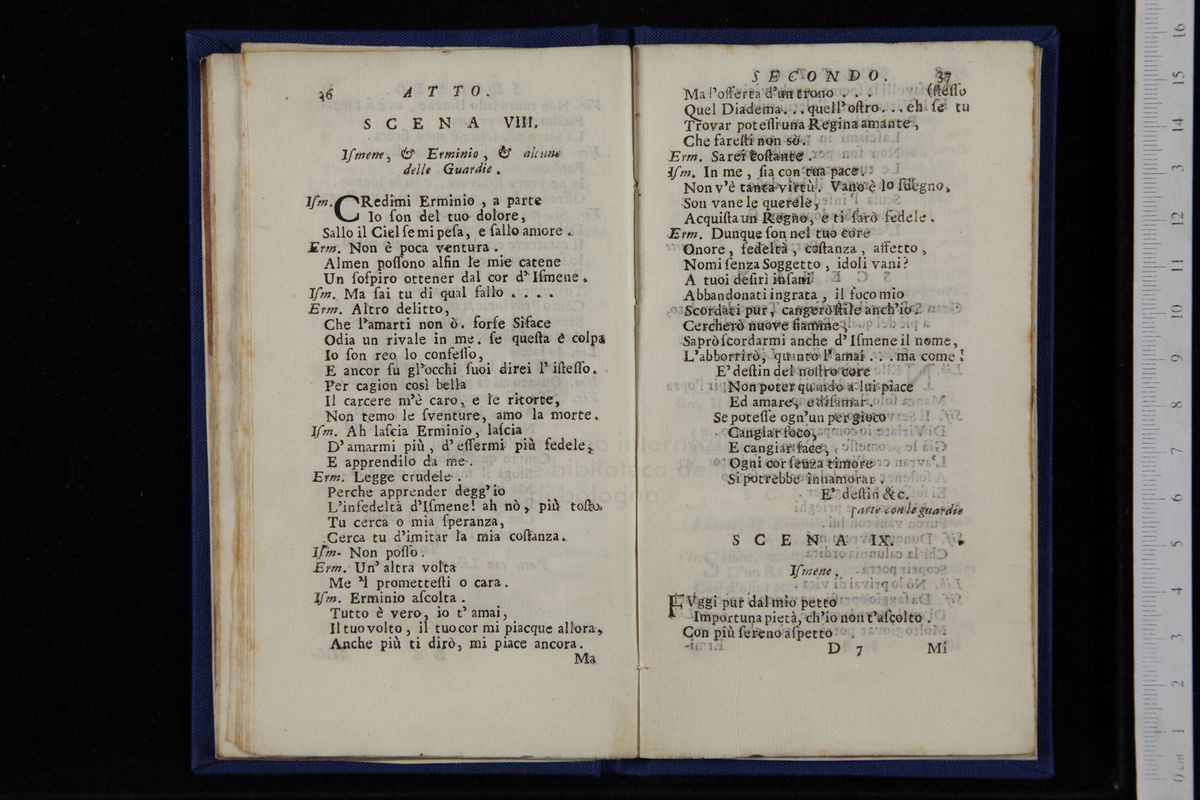 36 ATTO.
SCENA VIII.
Iſmene, & Erminio, & alcune
delle Guardie.
Iſm. CRedimi Erminio, a parte
Io ſon del tuo dolore,
Sallo il Ciel ſe mi peſa, e ſallo amore.
Erm. Non è poca ventura.
Almen poſſono alfin le mie catene
Un ſoſpiro ottener dal cor d'Iſmene.
Iſm. Ma ſai tu di qual fallo ....
Erm. Altro delitto,
Che l'amarti non ò. forſe Siface
Odia un rivale in me. ſe queſta è colpa
Io ſon reo lo confeſſo,
E ancor ſu gl'occhi ſuoi direi l'iſteſſo.
Per cagion così bella
Il carcere m'è caro, e le ritorte,
Non temo le ſventure, amo la morte.
Iſm. Ah laſcia Erminio, laſcia
D'amarmi più, d'eſſermi più fedele;
E apprendilo da me.
Erm. Legge crudele.
Perche apprender degg'io
L'infedeltà d'Iſmene! ah nò, più toſto,
Tu cerca o mia ſperanza,
Cerca tu d'imitar la mia coſtanza.
Iſm. Non poſſo.
Erm. Un' altra volta
Me 'l prometteſti o cara.
Iſm. Erminio aſcolta.
Tutto è vero, io t'amai,
Il tuo volto, il tuo cor mi piacque allora,
Anche più ti dirò, mi piace ancora.
Ma
SECONDO. 37
Ma l'offerta d'un trono ... (ſteſſo
Quel Diadema... quell'oſtro... eh ſe tu
Trovar poteſſi una Regina amante,
Che fareſti non sò.
Erm. Sarei coſtante.
Iſm. In me, ſia con tua pace.
Non v'è tanta virtù. Vano è lo ſdegno,
Son vane le querele,
Acquiſta un Regno, e ti ſarò fedele.
Erm. Dunque ſon nel tuo core
Onore, fedeltà, coſtanza, affetto,
Nomi ſenza Soggetto, idoli vani?
A tuoi deſiri inſani
Abbandonati ingrata, il foco mio
Scordati pur, cangerò ſtile anch'io.
Cercherò nuove fiamme,
Saprò ſcordarmi anche d'Iſmene il nome,
L'abborrirò, quanto l'amai ... ma come!
E' deſtin del noſtro core
Non poter quando a lui piace
Ed amare, e diſamar.
Se poteſſe ogn'un per gioco
Cangiar foco,
E cangiar face,
Ogni cor ſenza timore
Si potrebbe innamorar.
E' deſtin &c.
parte con le guardie
SCENA IX.
Iſmene.
FUggi pur dal mio petto
Importuna pietà, ch'io non t'aſcolto.
Con più ſereno aſpetto
D 7 Mi